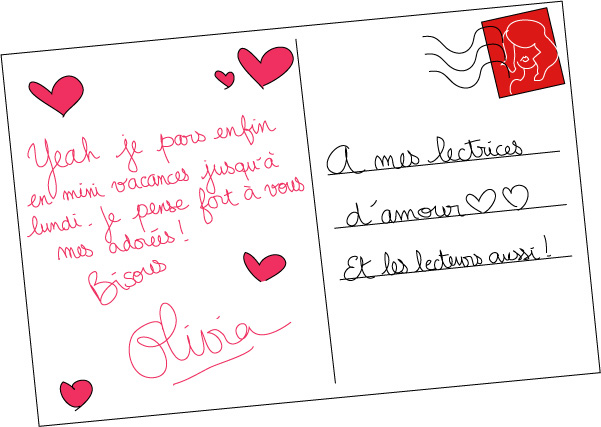 Yeah je pars enfin
en mini vacances jusqu'à
lundi. Je pense fort à vous
mes adorées!
Bisous
Olivia
A mes lectrices
d'amour ♡♡
Et les lecteurs aussi!